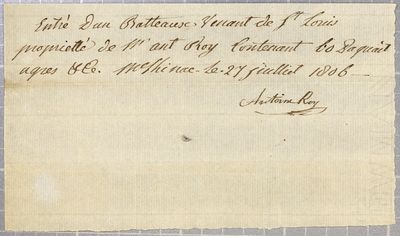 Entré Dun Batteaux Venant de St. Louis
propriété de Mr. ant Roy Contenant 60 Paquait
agres &c. Mcshinac le 27 juillet 1806
Antoine Roy